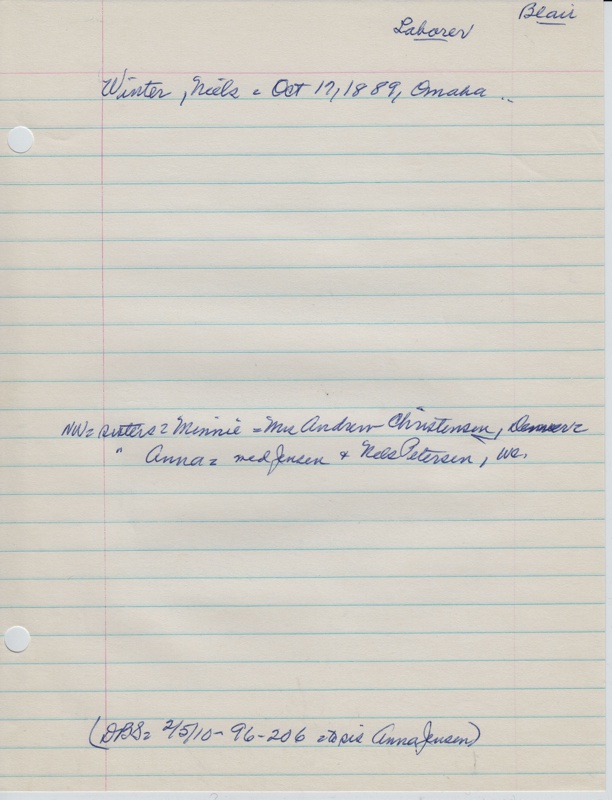 Blair
Laborer
Winter, Niels = Oct 17, 1889, Omaha ..
NW= sisters = Minnie = Mrs Andrew Christensen, Denver=
" Anna = med Jensen + Nels Petersen, WC.
(DBS= 2/5/10-96-206 = to sis Anna Jensen)